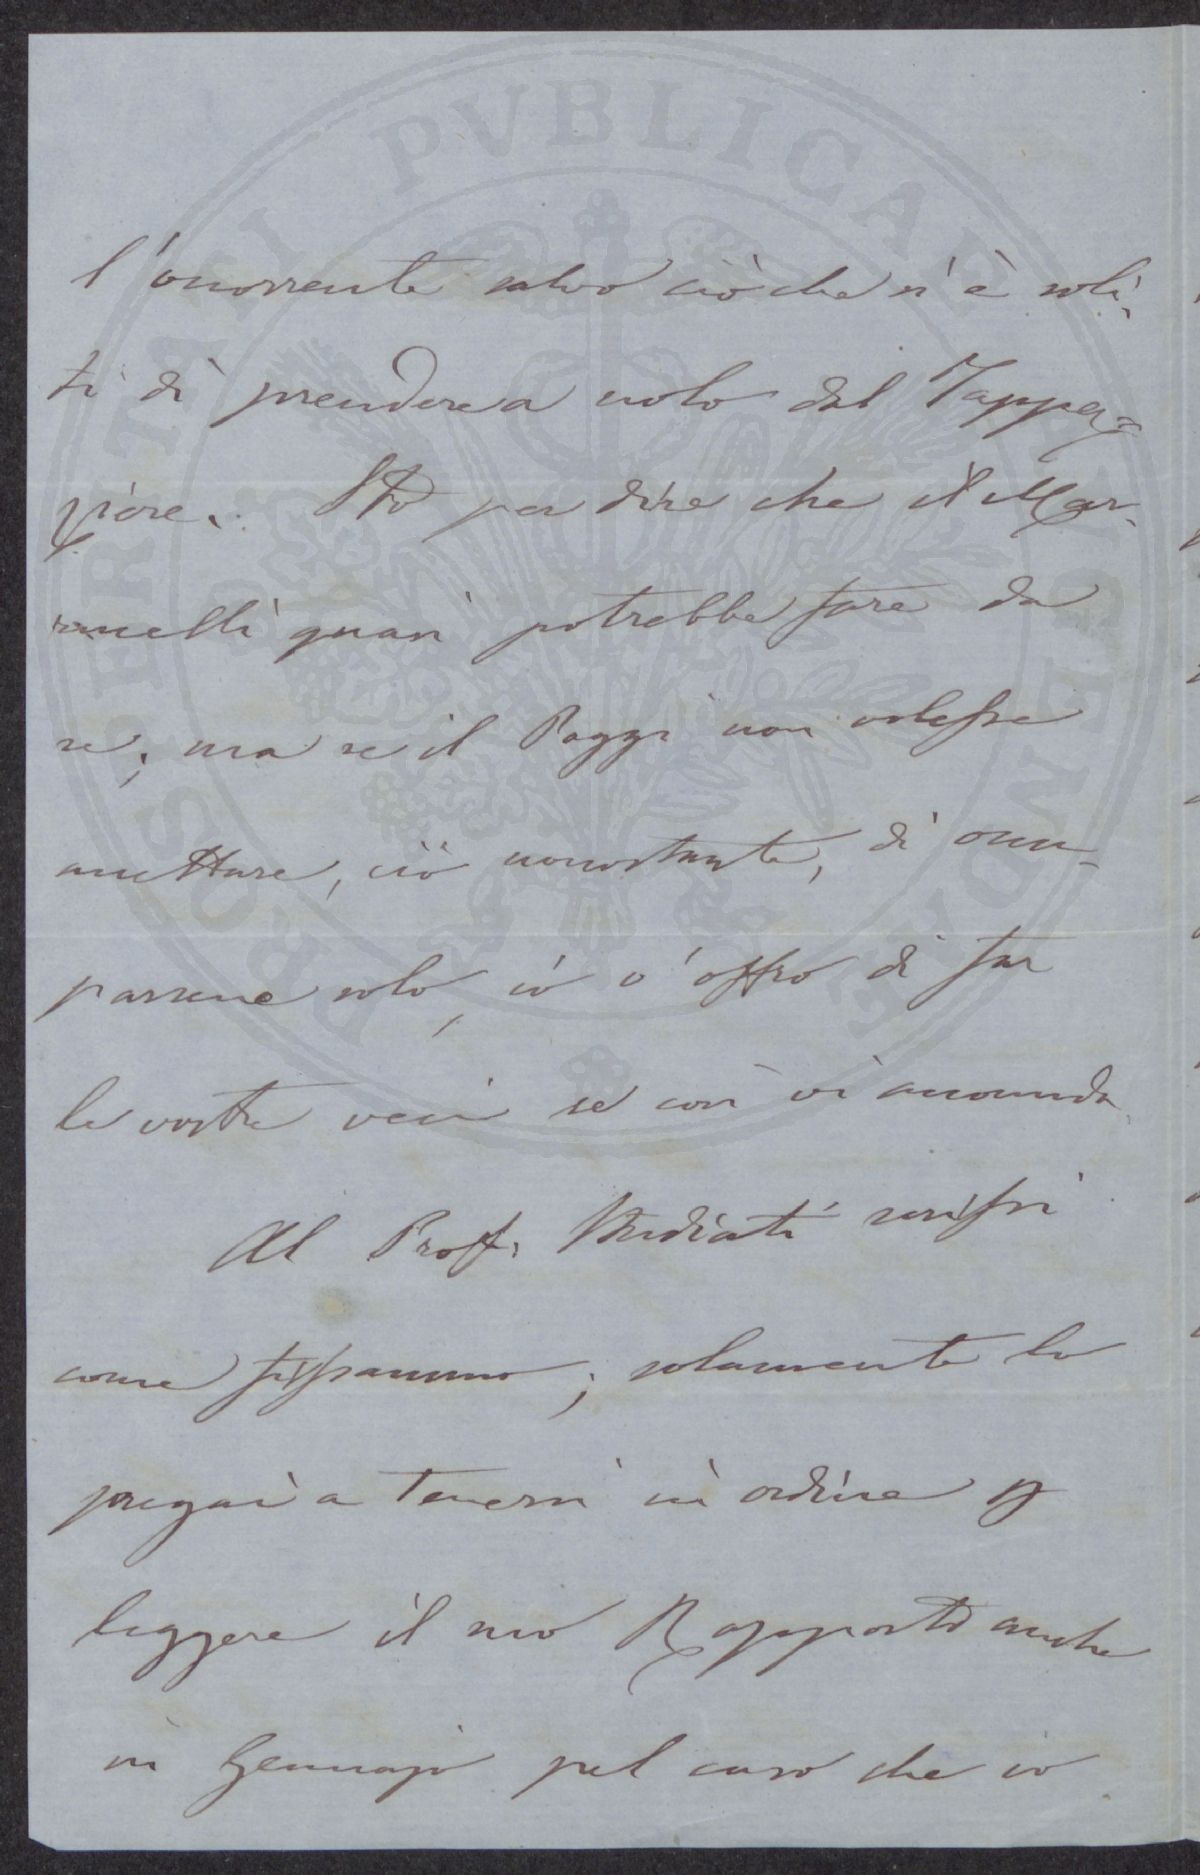 PROSPERITATI PVBLICAE AVGENDAE
l'occorrente salvo ciò che si è soli-
ti di prendere a nolo dal Tappez=
ziere. Sto per dire che il Mar-
rucelli quasi potrebbe fare da
se; ma se il Poggi non volesse
accettare, ciò nonostante, di occu-
parsene solo, io v'offro di far
le vostre veci se così vi accomoda.
Al Prof. Studiati scrissi
come fissammo; solamente lo
pregai a tenersi in ordine p
leggere il suo Rapporto anche
in Gennajo pel caso che io